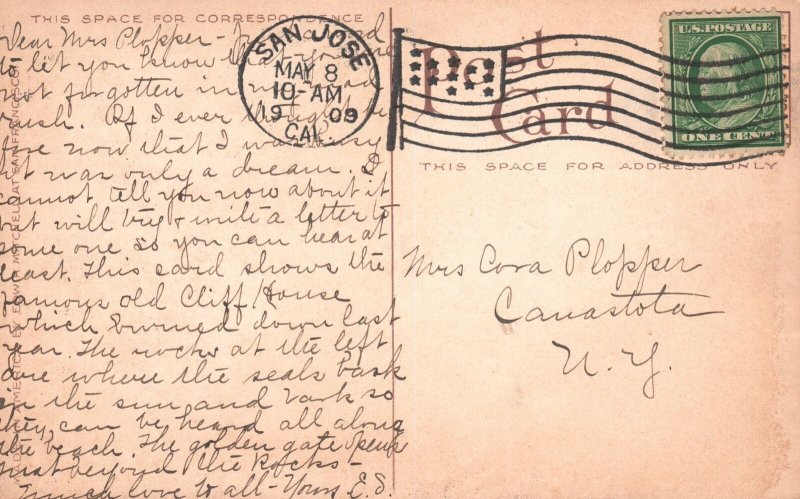 THIS SPACE FOR CORRESPONDENCE
Dear Mrs Plopper -
to let you know
not forgotten in
rush. If I ever thought
fine now that I was busy
it was only a dream. I
cannot tell you now about it
but will try & write a letter to
some one so you can hear at
least. This card shows the
famous old Cliff House
which burned down last
year. The rocks at the left
are where the seals bask
in the sun and bark so
they can be heard all along
the beach. The golden gate opens
just beyond the Rocks -
much love to all - Yours E.S.
SAN JOSE
MAY 8
10-AM
1909
CAL.
Post
Card
U.S. POSTAGE
ONE CENT
THIS SPACE FOR ADDRESS ONLY
Mrs Cora Plopper
Canastota
N. Y.
MITCHELL AT SAN FRANCISCO